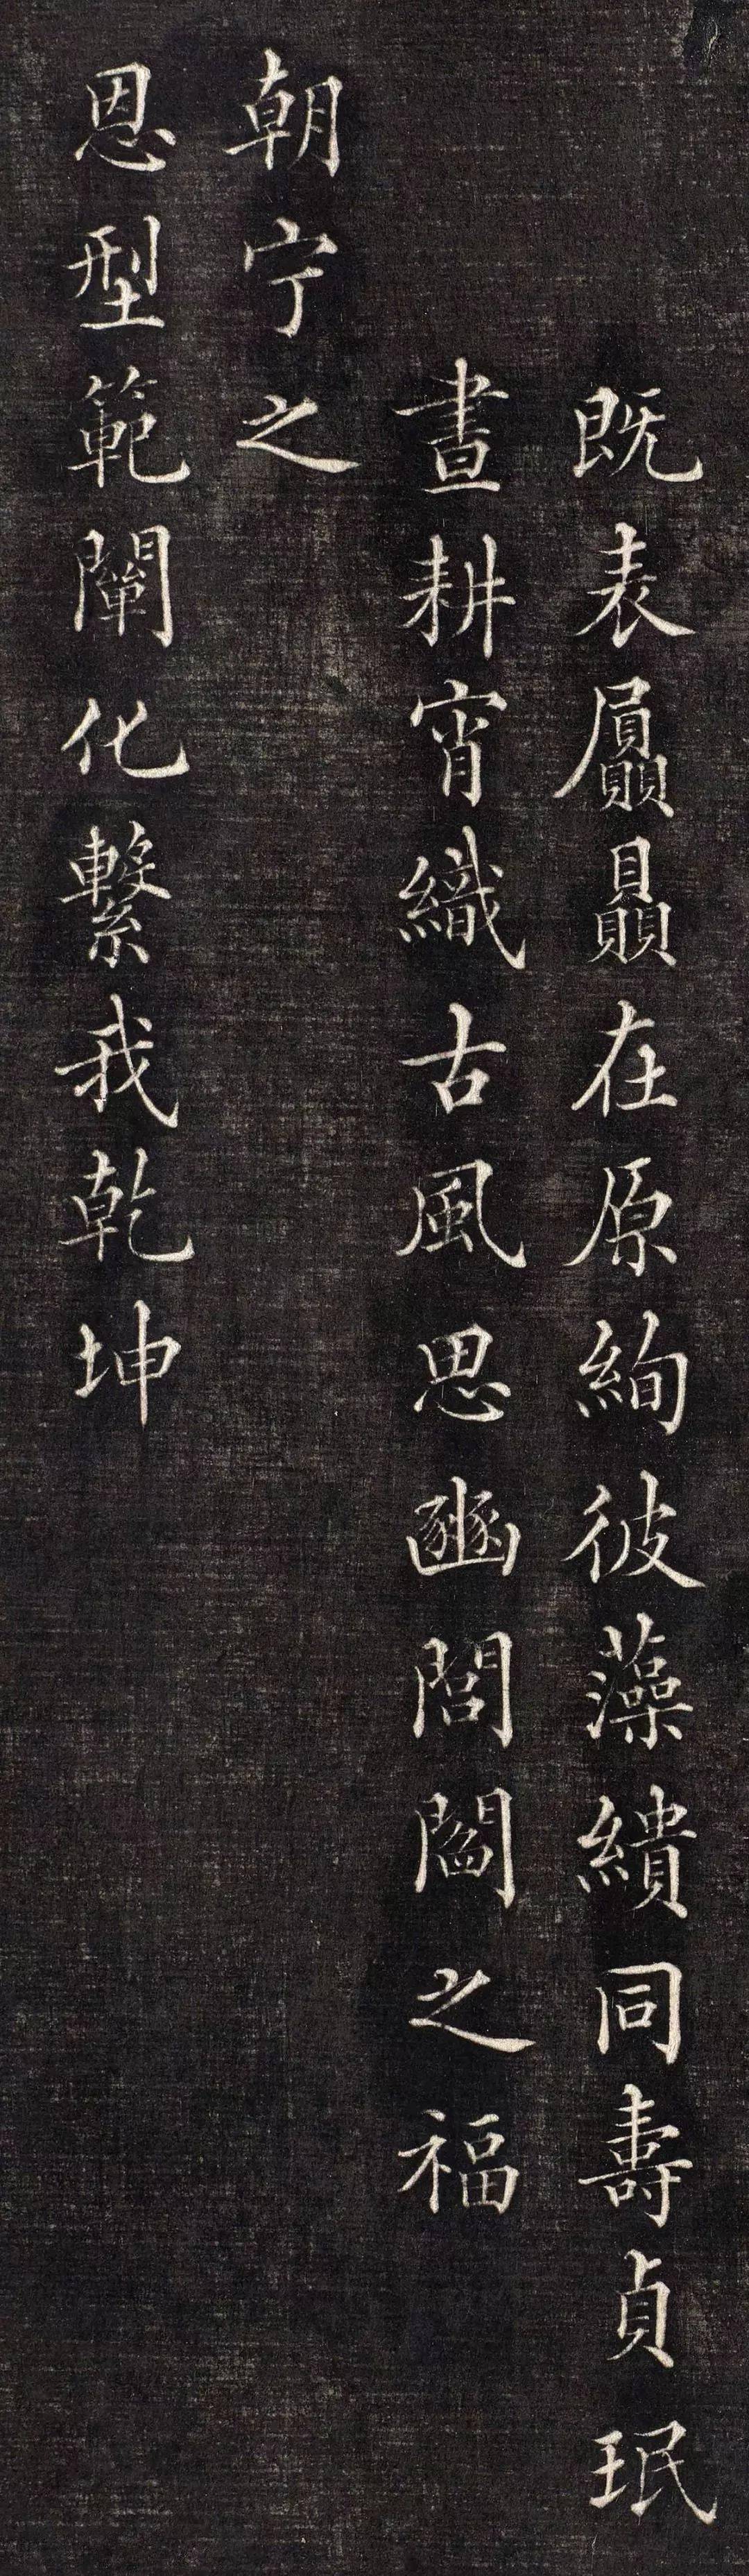 既表屭贔在原絢彼藻繢同壽貞珉
晝耕宵織古風思豳閻閻之福
朝宁之
恩型範闡化繫我乾坤